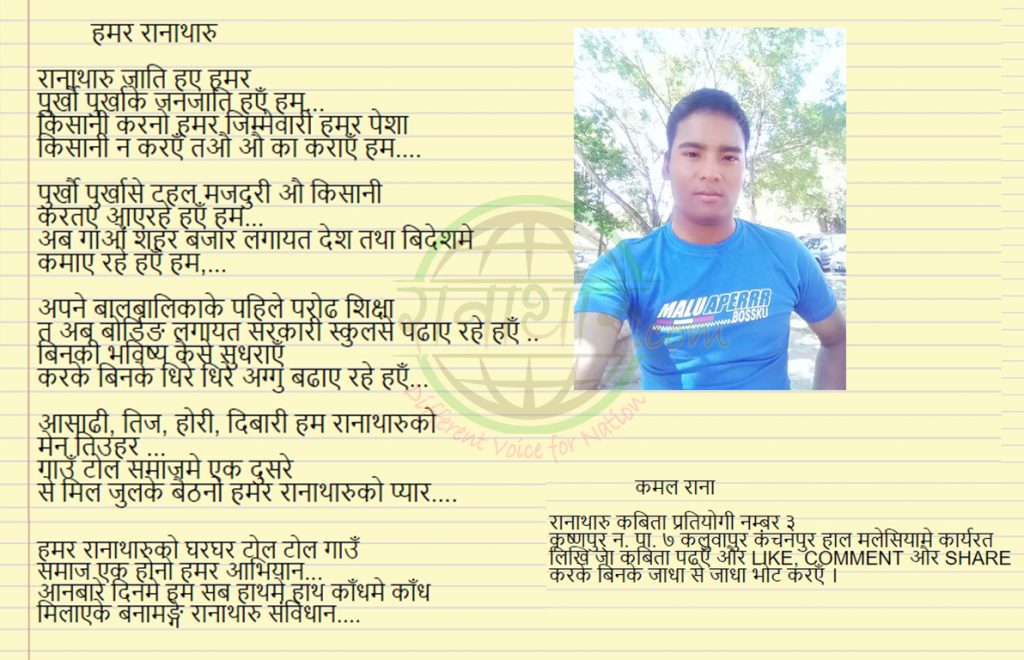 हमर रानाथारु
रानाथारु जाति हए हमर
पुर्खौ पुर्खाके जनजाति हएँ हम...
किसानी करनो हमर जिम्मेवारी हमर पेशा
किसानी न करएँ तऔ औ का कराएँ हम....
पुर्खौ पुर्खासे टहल मजदुरी औ किसानी
करतएँ आएरहे हएँ हम...
अब गाओं शहर बजार लगायत देश तथा बिदेशमे
कमाए रहे हएँ हम,...
अपने बालबालिकाके पहिले परोढ शिक्षा
त अब बोर्डिङ लगायत सरकारी स्कुलसे पढाए रहे हएँ ..
बिनकी भविष्य कैसे सुधराएँ
करके बिनके धिरे धिरे अग्गु बढाए रहे हएँ...
आसाढी, तिज, होरी, दिबारी हम रानाथारुको
मेन तिउहर ...
गाउँ टोल समाजमे एक दुसरे
से मिल जुलके बैठनो हमर रानाथारुको प्यार....
हमर रानाथारुको घरघर टोल टोल गाउँ
समाज एक होनो हमर अभियान...
आनबारे दिनमे हम सब हाथमे हाथ काँधमे काँध
मिलाएके बनामङ्गे रानाथारु संविधान....
रानाथारु.com
Different Voice for Nation
MALUAPERRR
BOSSKU
कमल राना
रानाथारु कबिता प्रतियोगी नम्बर ३
कृष्णपुर न. पा. ७ कलुवापुर कंचनपुर हाल मलेसियामे कार्यरत
लिखि जा कबिता पढएँ और LIKE, COMMENT और SHARE
करके बिनके जाधा से जाधा भोट करएँ ।